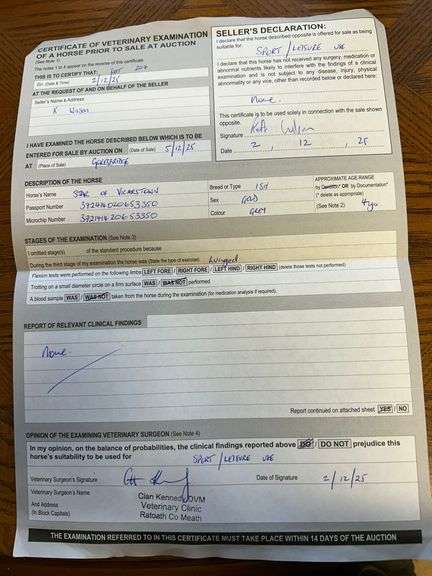 CERTIFICATE OF VETERINARY EXAMINATION
OF A HORSE PRIOR TO SALE AT AUCTION
(See Note 1)
The notes 1 to 4 appear on the reverse of this certificate
THIS IS TO CERTIFY THAT:
On (Date & Time) 2/12/25
AT THE REQUEST OF AND ON BEHALF OF THE SELLER
Seller's Name & Address
K Wilson
I HAVE EXAMINED THE HORSE DESCRIBED BELOW WHICH IS TO BE
ENTERED FOR SALE BY AUCTION ON (Date of Sale) 5/12/25
AT (Place of Sale) GORESBRIDGE
SELLER'S DECLARATION:
I declare that the horse described opposite is offered for sale as being
suitable for SPORT / LEISURE USE
I declare that this horse has not received any surgery, medication or
abnormal nutrients likely to interfere with the findings of a clinical
examination and is not subject to any disease, injury, physical
abnormality or any vice, other than recorded below or declared here:
None.
This certificate is to be used solely in connection with the sale shown
opposite.
Signature
Date 2, 12, 25
DESCRIPTION OF THE HORSE
Horse's Name STAR OF VICARSTOWN
Passport Number
Microchip Number
Breed or Type ISH
Sex GELD
Colour GREY
APPROXIMATE AGE RANGE
by Dentition* OR by Documentation*
(* delete as appropriate)
(See Note 2) 4yo
STAGES OF THE EXAMINATION (See Note 3)
I omitted stage(s) of the standard procedure because
During the third stage of my examination the horse was (State the type of exercise) Lunged
Flexion tests were performed on the following limbs LEFT FORE / RIGHT FORE / LEFT HIND / RIGHT HIND (delete those tests not performed)
Trotting on a small diameter circle on a firm surface WAS / WAS NOT performed
A blood sample WAS / WAS NOT taken from the horse during the examination (for medication analysis if required).
REPORT OF RELEVANT CLINICAL FINDINGS
None
Report continued on attached sheet YES / NO
OPINION OF THE EXAMINING VETERINARY SURGEON (See Note 4)
In my opinion, on the balance of probabilities, the clinical findings reported above DO / DO NOT prejudice this
horse's suitability to be used for SPORT / LEISURE USE
Veterinary Surgeon's Signature
Date of Signature 2/12/25
Veterinary Surgeon's Name
And Address
(In Block Capitals)
Cian Kennedy DVM
Veterinary Clinic
Ratoath Co Meath
THE EXAMINATION REFERRED TO IN THIS CERTIFICATE MUST TAKE PLACE WITHIN 14 DAYS OF THE AUCTION